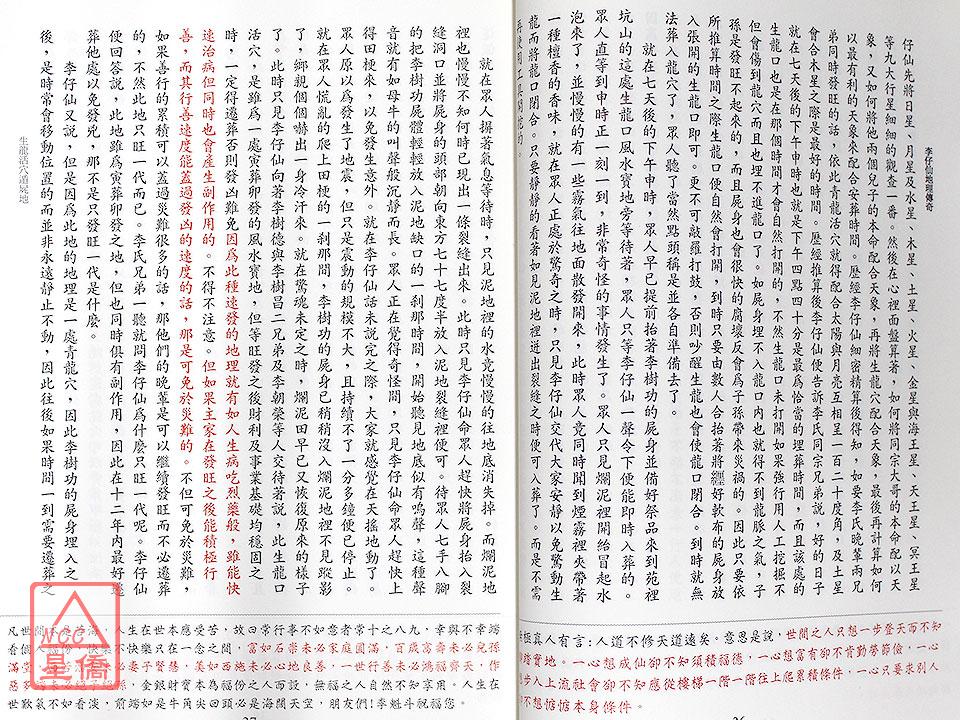 李仔仙地理傳奇
仔仙先將日星、月星及水星、木星、土星、火星、金星與海王星、天王星、冥王星
等九大行星細細的觀查一番。然後在心裡面盤算著，如何將同宗大哥的本命配以天
象，又如何將他兩個兒子的本命配合天象，再將生龍穴配合天象，最後再計算如何
以最有利的天象來配合安葬時間。歷經李仔仙細密精算後得知，如要李氏晚輩兩兄
弟同時發旺的話，依此青龍活穴就得要配合太陽與月亮互相呈一百二十度角，及土星
會合木星之際是最好的時間。歷經推算後李仔仙便告訴李氏同宗兄弟說，好的日子
就在七天後的下午申時也就是下午四點四十分是最爲恰當的埋葬時間，而且該處的
生龍口也是在那個時間才會自然打開的，不然生龍口未打開如果強行用人工挖掘不
但會傷到龍穴而且也埋不進龍口了。如屍身埋不入龍口內也就得不到龍脈之氣，子
孫是發旺不起來的，而且屍身也會很快的腐壞反會爲子孫帶來災禍的。因此只要依
所推算時間之際生龍口便自然會打開，到時只要由數人合抬著將經好軟布的屍身放
入張開的生龍口即可。更不可敲鑼打鼓，否則吵醒生龍也會使龍口閉合。到時就無
法葬入龍穴了，眾人聽了當然點頭稱是並各自準備去了。
就在七天後的下午申時，眾人早已提前抬著李樹功的屍身並備好祭品來到苑裡
坑山的這處生龍口風水寶地旁等待著，眾人只等李仔仙一聲令下便能即時入葬的。
眾人直等到申時正一刻一到，非常奇怪的事情發生了。眾人只見爛泥裡開始冒起水
泡來了，並慢慢的有一些霧氣往地面散發開來，此時眾人竟同時聞到煙霧裡夾帶著
一種檀香的香味，就在眾人正處於驚奇之時，只見李仔仙交代大家安靜以免驚動生
龍而將龍口閉合。只要靜靜的看著如見泥地裡迸出裂縫之時便可入葬了。而是不需
極真人有言：人道不修天道遠矣。意思是說，世間之人只想一步登天而不知
踏實地。一心想成仙卻不知須積福德，一心想富有卻不肯勤勞節儉，一心
步入上流社會卻不知應從樓梯一階一階往上爬累積條件，一心只要求別人
不想惦惦本身條件。
就在眾人摒著氣息等待時，只見泥地裡的水竟慢慢的往地底消失掉。而爛泥地
裡也慢慢不知何時已現出一條裂縫出來。此時只見李仔仙命眾人趕快將屍身抬入裂
縫洞口並將屍身的頭部朝向東方七十七度半放入泥地裂縫裡便可。待眾人七手八腳
的把李樹功屍體輕輕放入泥地缺口的一剎那時間，開始聽見地底似有鳴聲，這種聲
音就有如母牛的叫聲般沉靜而長。眾人正在覺得奇怪間，只見李仔仙命眾人趕快上
得田梗來，以免發生意外。就在李仔仙話未說完之際，大家就感覺在天搖地動了。
眾人原以爲發生了地震，但只是震動的規模不大，且持續不了一分多鐘便已停止。
就在眾人慌亂的爬上田梗的一剎那間，李樹功的屍身已稍稍沒入爛泥地裡不見蹤影
了，鄉親個個嚇出一身冷汗來。就在驚魂未定之時，爛泥田早已又恢復原來的樣子
了。此時只見李仔仙向著李樹德與李樹昌二兄弟及李朝榮等人交待著說，此生龍口
活穴，是雖爲一處寅葬卯發的風水寶地，但等旺發之後財利及事業基礎均穩固之
時，一定得遷葬否則發凶難免因爲此種速發的地理就有如人生病吃烈藥般，雖能快
速治病但同時也會產生副作用的。不得不注意。但如果主家在發旺之後能積極行
善，而其行善速度能蓋過發凶的速度的話，那是可免於災難的。不但可免於災難，
如果行善的累積可以蓋過災難很多的話，那他們的晚輩是可以繼續發旺而不必遷葬
的，不然此地只旺一代而已。李氏兄弟一聽就問李仔仙爲什麼只旺一代呢。李仔仙
便回答說，此地雖爲寅葬卯發之地，但也同時俱有副作用，因此在十二年內最好遷
葬他處以免發兇，那不是只發旺一代是什麼。
李仔仙又說，但是因爲此地的地理是一處青龍穴，因此李樹功的屍身埋入之
後，是時常會移動位置的而並非永遠靜止不動，因此往後如果時間一到需要遷葬之
生龍活穴道屍地
凡世間
看個人
滿堂
惡
世歎氣不如看淡，前端如是牛角尖回頭必是海闊天空，朋友們！李魁斗祝福您。
NCC
星僑